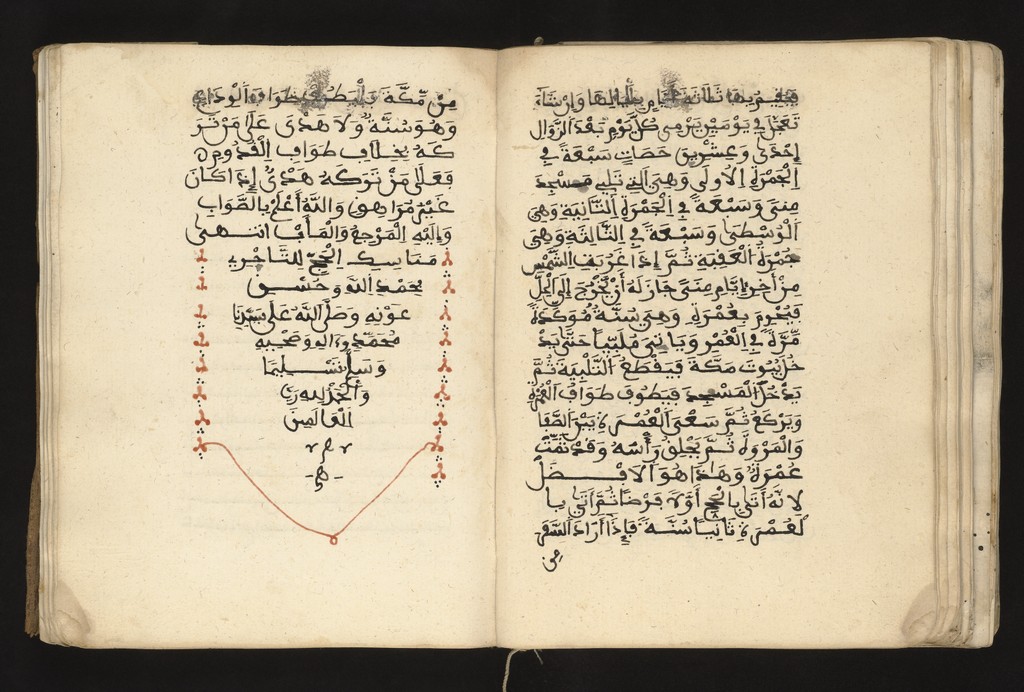 فيقيم بها ثلاثة أيام بلياليها وإن شاء
تعجل في يومين يرمي كل يوم بعد الزوال
إحدى وعشرين حصات سبعة في
الجمرة الاولى وهي التي تلي مسجد
منى وسبعة في الجمرة الثانية وهي
الوسطى وسبعة في الثالثة وهي
جمرة العقبة ثم إذا غربت الشمس
من أخر أيام منى جاز له أن يخرج إلى الحل
فيحرم بعمرة وهي سنة مؤكدة
مرة في العمر ويأتي ملبيا حتى يد
خل بيوت مكة فيقطع التلبية ثم
يدخل المسجد فيطوف طواف العمرة
ويركع ثم سعى العمرة بين الصفا
والمروة ثم يحلق رأسه وقد تمت
عمرة وهذا هو الافضل
لانه أتى بالحج أولا فرضا ثم أتى با
لعمرة ثانيا سنة فإذا أراد السفر
من
من مكة يطوف طواف الوداع
وهو سنة ولا هدى على من تر
كه بخلاف طواف القدوم
فعلى من تركه هدي إذا كان
غير مراهق والله أعلم بالصواب
وإليه المرجع والمأب انتهى
مناسك الحج للتاجري
بحمد الله وحسن
عونه وصلى الله على سيدنا
محمد واله وصحبه
وسلم تسليما
والحمد لله رب
العالمين